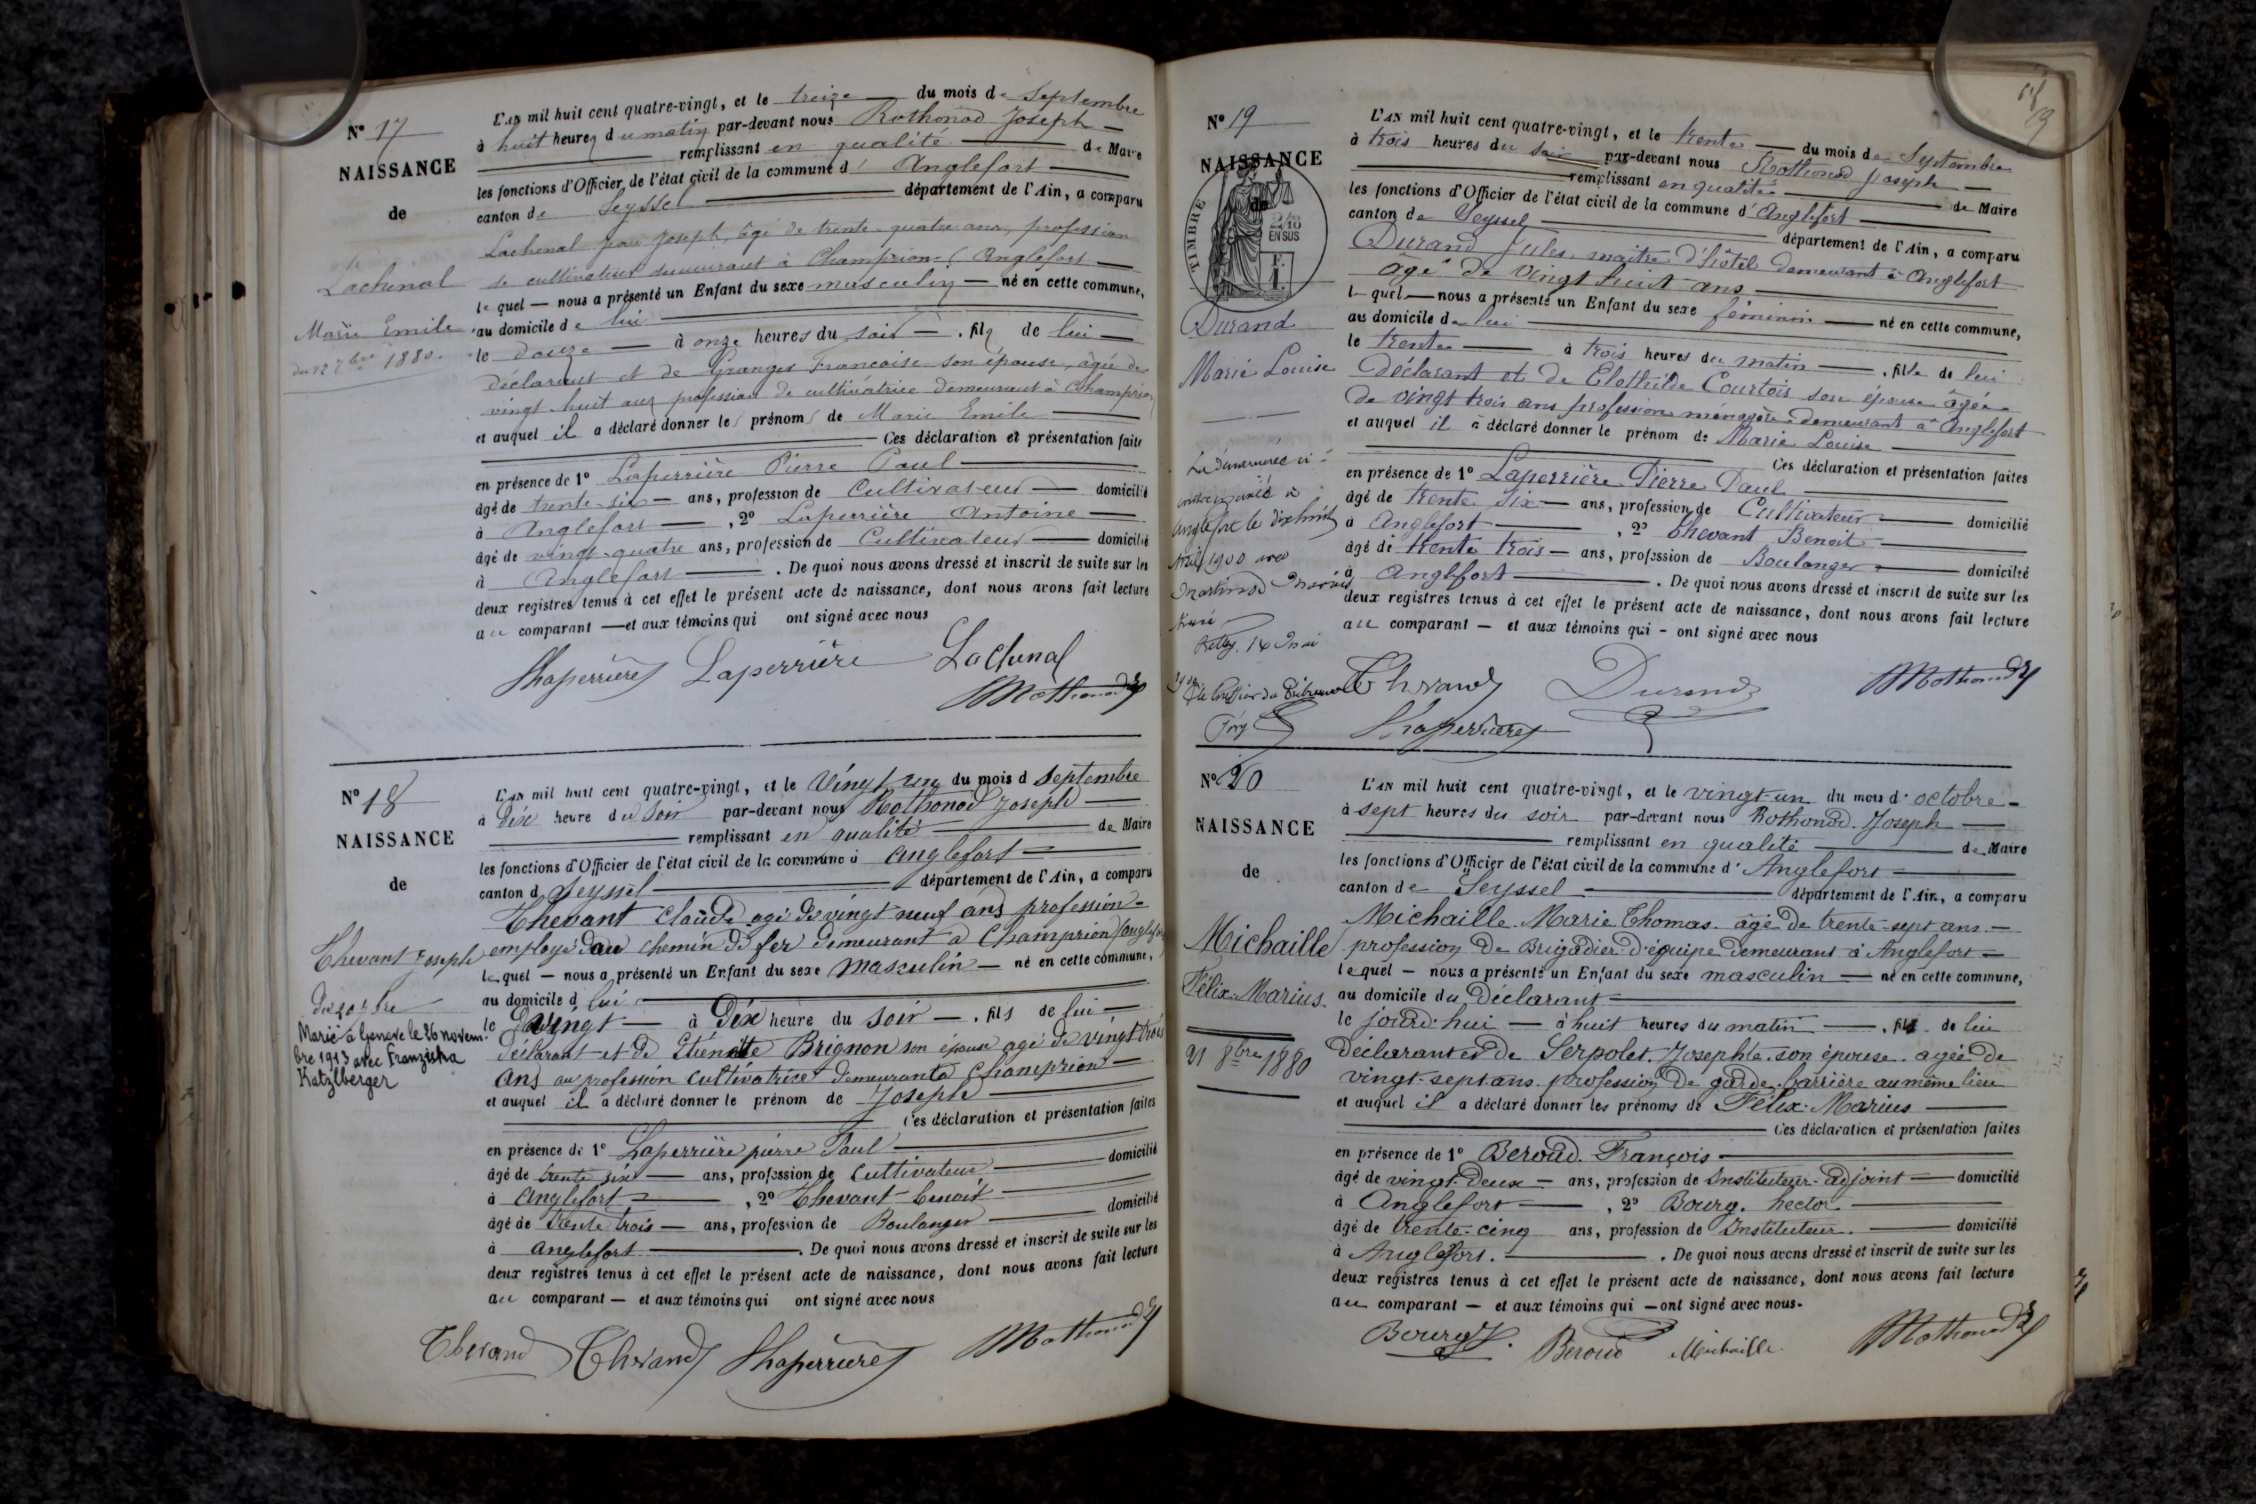 N° 17
NAISSANCE
de
Lachenal
Marie Emile
du 12 7bre 1880.
L'AN mil huit cent quatre-vingt, et le treize du mois de Septembre
à huit heures du matin par-devant nous Rothonod Joseph
remplissant en qualité de Maire
les fonctions d'Officier de l'état civil de la commune d' Anglefort
canton de Seyssel département de l'Ain, a comparu
Lachenal Joseph, âgé de trente-quatre ans, profession
de cultivateur demeurant à Champrion (Anglefort
le quel — nous a présenté un Enfant du sexe masculin — né en cette commune,
au domicile de lui
le douze — à onze heures du soir — . fils de lui —
Déclarant et de Granges Francoise son épouse, âgée de
vingt-huit ans profession de cultivatrice demeurant à Champrion
et auquel il a déclaré donner les prénoms de Marie Emile
Ces déclaration et présentation faite
en présence de 1° Laperrière Pierre Paul
âgé de trente-six — ans, profession de Cultivateur — domicilié
à Anglefort — , 2° Laperrière Antoine —
âgé de vingt-quatre ans, profession de Cultivateur — domicilié
à Anglefort — . De quoi nous avons dressé et inscrit de suite sur les
deux registres tenus à cet effet le présent acte de naissance, dont nous avons fait lecture
au comparant — et aux témoins qui ont signé avec nous
Laperrière Lachenal
Rothonod
N° 18
NAISSANCE
de
Thevant Joseph
Marié à Genève le 26 novem-
bre 1913 avec Franziska
Katzlberger
L'AN mil huit cent quatre-vingt, et le Vingt un du mois d Septembre
à Dix heure du Soir par-devant nous Rothonod Joseph
remplissant en qualité de Maire
les fonctions d'Officier de l'état civil de la commune à Anglefort
canton d Seyssel département de l'Ain, a comparu
Thevant Claude agé de vingt neuf ans profession
employé au chemin de fer demeurant à Champrion (Anglefort
le quel — nous a présenté un Enfant du sexe Masculin — né en cette commune,
au domicile d lui
le vingt — à Dix heure du Soir — . fils de lui —
déclarant et de Etiénette Brignon son épouse agé de vingt trois
ans profession cultivatrice demeurant à Champrion
et auquel il a déclaré donner le prénom de Joseph
Ces déclaration et présentation faites
en présence de 1° Laperrière pierre Paul
âgé de trente six — ans, profession de Cultivateur — domicilié
à Anglefort — , 2° Thevant benoit
âgé de trente trois — ans, profession de Boulanger — domicilié
à Anglefort — . De quoi nous avons dressé et inscrit de suite sur les
deux registres tenus à cet effet le présent acte de naissance, dont nous avons fait lecture
au comparant — et aux témoins qui ont signé avec nous
Thevand Thevand Laperrière Rothonod
19
N° 19
NAISSANCE
de
TIMBRE
2/10
EN SUS
Durand
Marie Louise
Anglefort le dix huit
Avril 1900 avec
L'AN mil huit cent quatre-vingt, et le trente — du mois de Septembre
à trois heures du soir par-devant nous Rothonod Joseph
remplissant en qualité de Maire
les fonctions d'Officier de l'état civil de la commune d' Anglefort
canton de Seyssel département de l'Ain, a comparu
Durand Jules, maître d'hôtel demeurant à Anglefort
âgé de vingt huit ans
le quel — nous a présenté un Enfant du sexe féminin — né en cette commune,
au domicile de lui
le trente — à trois heures du matin — . fille de lui
Déclarant et de Clothilde Courtois son épouse âgée
de vingt trois ans profession menagère demeurant à Anglefort
et auquel il a déclaré donner le prénom de Marie Louise
Ces déclaration et présentation faites
en présence de 1° Laperrière Pierre Paul
âgé de trente six — ans, profession de Cultivateur — domicilié
à Anglefort — , 2° Thevant Benoit
âgé de trente trois — ans, profession de Boulanger — domicilié
à Anglefort — . De quoi nous avons dressé et inscrit de suite sur les
deux registres tenus à cet effet le présent acte de naissance, dont nous avons fait lecture
au comparant — et aux témoins qui — ont signé avec nous
Thevand Durand Rothonod
Laperrière
N° 20
NAISSANCE
de
Michaille
Félix-Marius.
21 8bre 1880
L'AN mil huit cent quatre-vingt, et le vingt-un du mois d' octobre
à sept heures du soir par-devant nous Rothonod Joseph
remplissant en qualité de Maire
les fonctions d'Officier de l'état civil de la commune d' Anglefort
canton de Seyssel département de l'Ain, a comparu
Michaille Marie Thomas âgé de trente-sept ans
profession de Brigadier d'équipe demeurant à Anglefort
le quel — nous a présenté un Enfant du sexe masculin — né en cette commune,
au domicile du Déclarant
le jourd'hui — à huit heures du matin — . fils de lui
déclarant et de Serpolet Josephte son épouse agée de
vingt-sept ans profession de garde-barrière au même lieu
et auquel il a déclaré donner les prénoms de Félix-Marius
Ces déclaration et présentation faites
en présence de 1° Beroud François
âgé de vingt-deux — ans, profession de Instituteur-adjoint — domicilié
à Anglefort — , 2° Bourg hector
âgé de trente-cinq ans, profession de Instituteur — domicilié
à Anglefort. — . De quoi nous avons dressé et inscrit de suite sur les
deux registres tenus à cet effet le présent acte de naissance, dont nous avons fait lecture
au comparant — et aux témoins qui — ont signé avec nous.
Bourg Beroud Michaille Rothonod